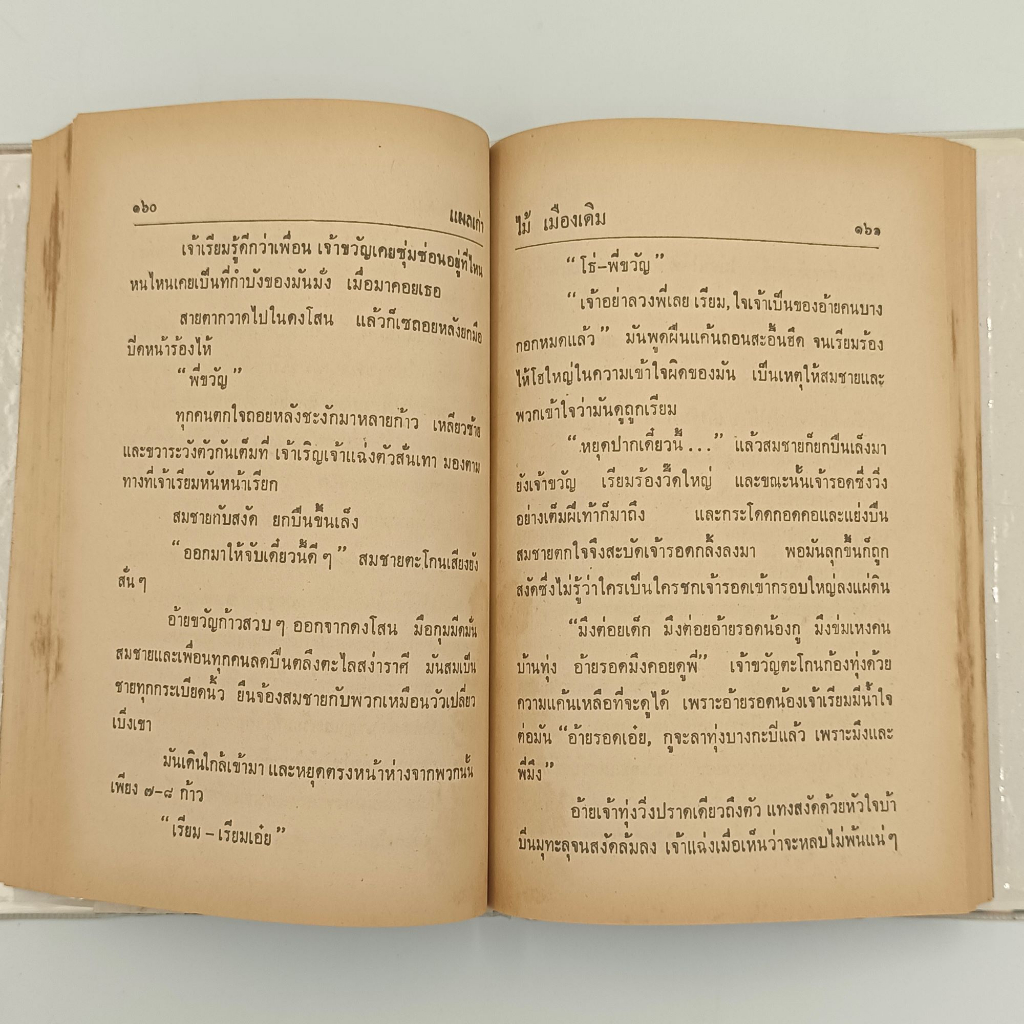 ๑๖๐
แผลเก่า
เจ้าเรียมรู้ดีกว่าเพื่อน เจ้าขวัญเคยซุ่มซ่อนอยู่ที่ไหน
หนไหนเคยเป็นที่กำบังของมันมั่ง เมื่อมาคอยเธอ
สายตากวาดไปในดงโสน แล้วก็เซถอยหลังยกมือ
บีดหน้าร้องไห้
“พี่ขวัญ”
ทุกคนตกใจถอยหลังชะงักมาหลายก้าว เหลียวซ้าย
และขวาระวังตัวกันเต็มที่ เจ้าเริญเจ้าแฉ่งตัวสั่นเทา มองตาม
ทางที่เจ้าเรียมหันหน้าเรียก
สมชายกับสงัด ยกปืนขึ้นเล็ง
“ออกมาให้จับเดี๋ยวนี้ดี ๆ” สมชายตะโกนเสียงยัง
สั่น ๆ
อ้ายขวัญก้าวสวบ ๆ ออกจากดงโสน มือกุมมีดมั่น
สมชายและเพื่อนทุกคนลดปืนตลึงตะไลสง่าราศี มันสมเป็น
ชายทุกกระเบียดนิ้ว ยืนจ้องสมชายกับพวกเหมือนวัวเปลี่ยว
เบิ่งเขา
มันเดินใกล้เข้ามา และหยุดตรงหน้าห่างจากพวกนั้น
เพียง ๗–๘ ก้าว
“เรียม – เรียมเอ๋ย”
ไม้ เมืองเดิม
๑๖๑
“โธ่–พี่ขวัญ”
“เจ้าอย่าลวงพี่เลย เรียม, ใจเจ้าเป็นของอ้ายคนบาง
กอกหมดแล้ว” มันพูดฝืนแค้นถอนสะอื้นฮึด จนเรียมร้อง
ไห้โฮใหญ่ในความเข้าใจผิดของมัน เป็นเหตุให้สมชายและ
พวกเข้าใจว่ามันดูถูกเรียม
“หยุดปากเดี๋ยวนี้ . . .” แล้วสมชายก็ยกปืนเล็งมา
ยังเจ้าขวัญ เรียมร้องวี๊ดใหญ่ และขณะนั้นเจ้ารอดซึ่งวิ่ง
อย่างเต็มฝีเท้าก็มาถึง และกระโดดกอดคอและแย่งปืน
สมชายตกใจจึงสะบัดเจ้ารอดกลิ้งลงมา พอมันลุกขึ้นก็ถูก
สงัดซึ่งไม่รู้ว่าใครเป็นใครชกเจ้ารอดเข้ากรอบใหญ่ลงแผ่ดิน
“มึงต่อยเด็ก มึงต่อยอ้ายรอดน้องกู มึงข่มเหงคน
บ้านทุ่ง อ้ายรอดมึงคอยดูพี่” เจ้าขวัญตะโกนก้องทุ่งด้วย
ความแค้นเหลือที่จะดูได้ เพราะอ้ายรอดน้องเจ้าเรียมมีน้ำใจ
ต่อมัน “อ้ายรอดเอ๋ย, กูจะลาทุ่งบางกะบี่แล้ว เพราะมึงและ
พี่มึง”
อ้ายเจ้าทุ่งวิ่งปราดเดียวถึงตัว แทงสงัดด้วยหัวใจบ้า
บิ่นมุทะลุจนสงัดล้มลง เจ้าแฉ่งเมื่อเห็นว่าจะหลบไม่พ้นแน่ ๆ